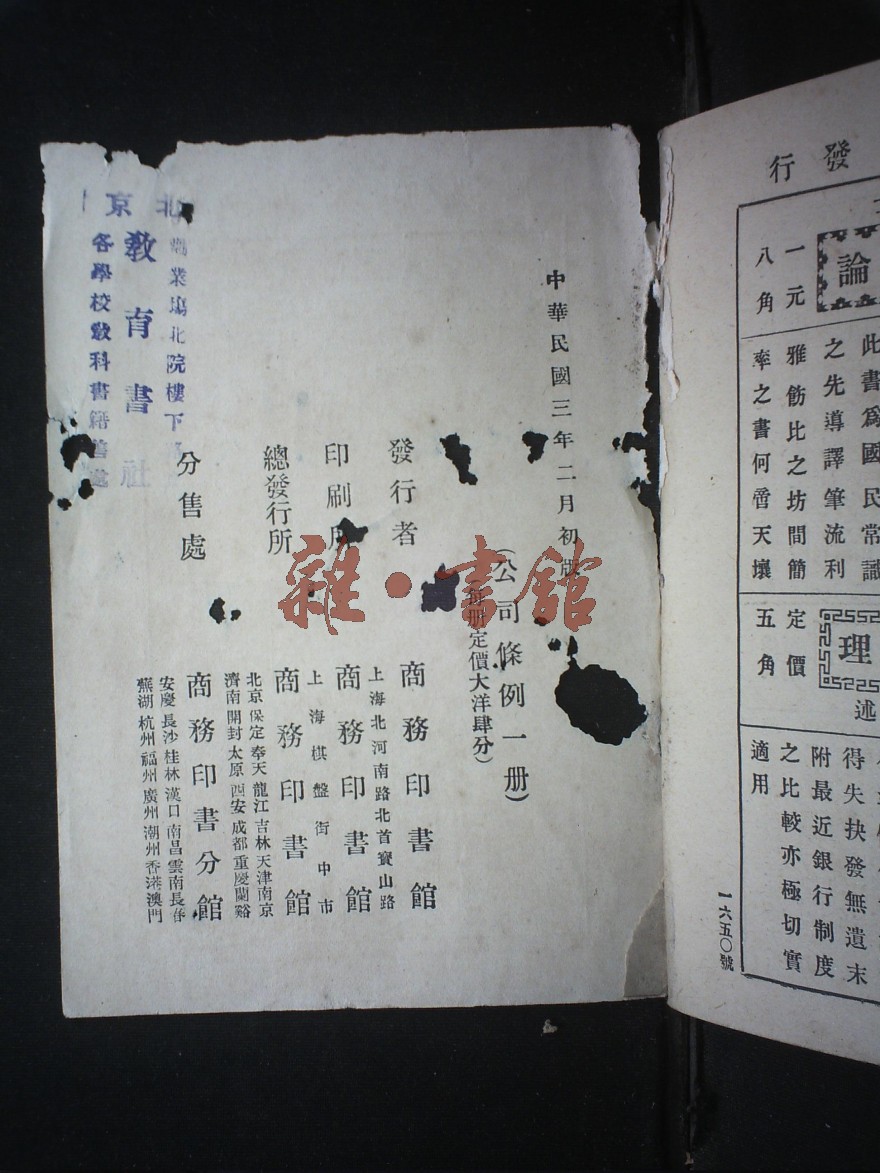 發行
一元
八角
論
此書爲國民常識
之先導譯筆流利
雅飭比之坊間簡
率之書何啻天壤
定價
五角
理
述
得失抉發無遺末
附最近銀行制度
之比較亦極切實
適用
一六五〇號
中華民國三年二月初版
(公司條例一册)
(每册定價大洋肆分)
發行者 商務印書館
上海北河南路北首寶山路
印刷所 商務印書館
上海棋盤街中市
總發行所 商務印書館
北京保定奉天龍江吉林天津南京
濟南開封太原西安成都重慶蘭谿
分售處 商務印書分館
安慶長沙桂林漢口南昌雲南長春
蕪湖杭州福州廣州潮州香港澳門
北京
業場北院樓下
教育書社
各學校教科書籍
雜·書館